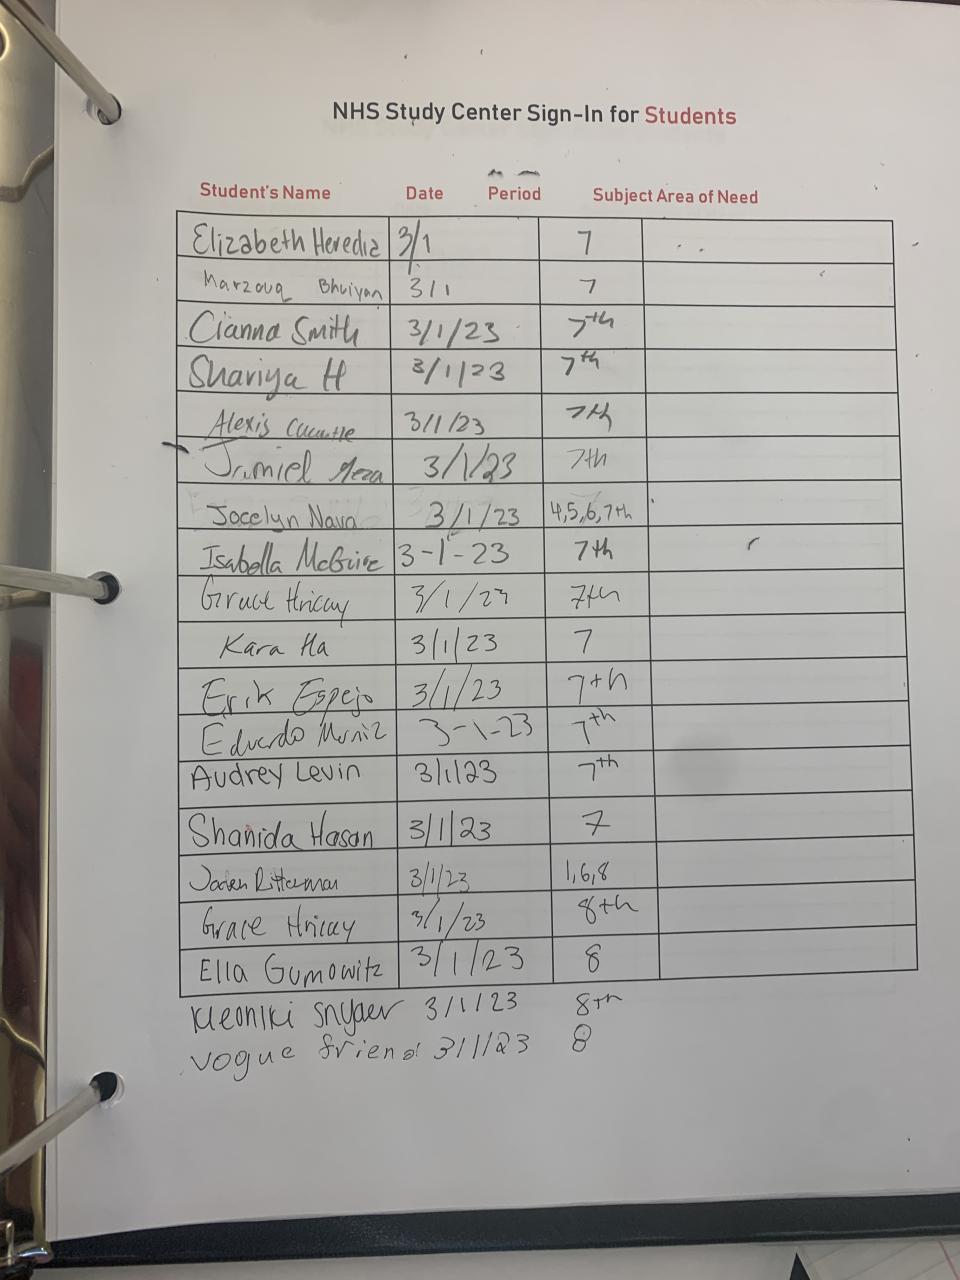 NHS Study Center Sign-In for Students
Student's Name Date Period Subject Area of Need
Elizabeth Heredia 3/1 7
Marzouq Bhuiyan 3/1 7
Cianna Smith 3/1/23 7th
Shariya H 3/1/23 7th
Alexis 3/1/23 7th
Jamiel Meza 3/1/23 7th
Jocelyn Nava 3/1/23 4,5,6,7th
Isabella McGuire 3-1-23 7th
Grace Hricay 3/1/23 7th
Kara Ha 3/1/23 7
Erik Espejo 3/1/23 7th
Eduardo Muniz 3-1-23 7th
Audrey Levin 3/1/23 7th
Shanida Hasan 3/1/23 7
Jaden Ritterman 3/1/23 1,6,8
Grace Hricay 3/1/23 8th
Ella Gumowitz 3/1/23 8
Kleoniki Snyder 3/1/23 8th
vogue friend 3/1/23 8